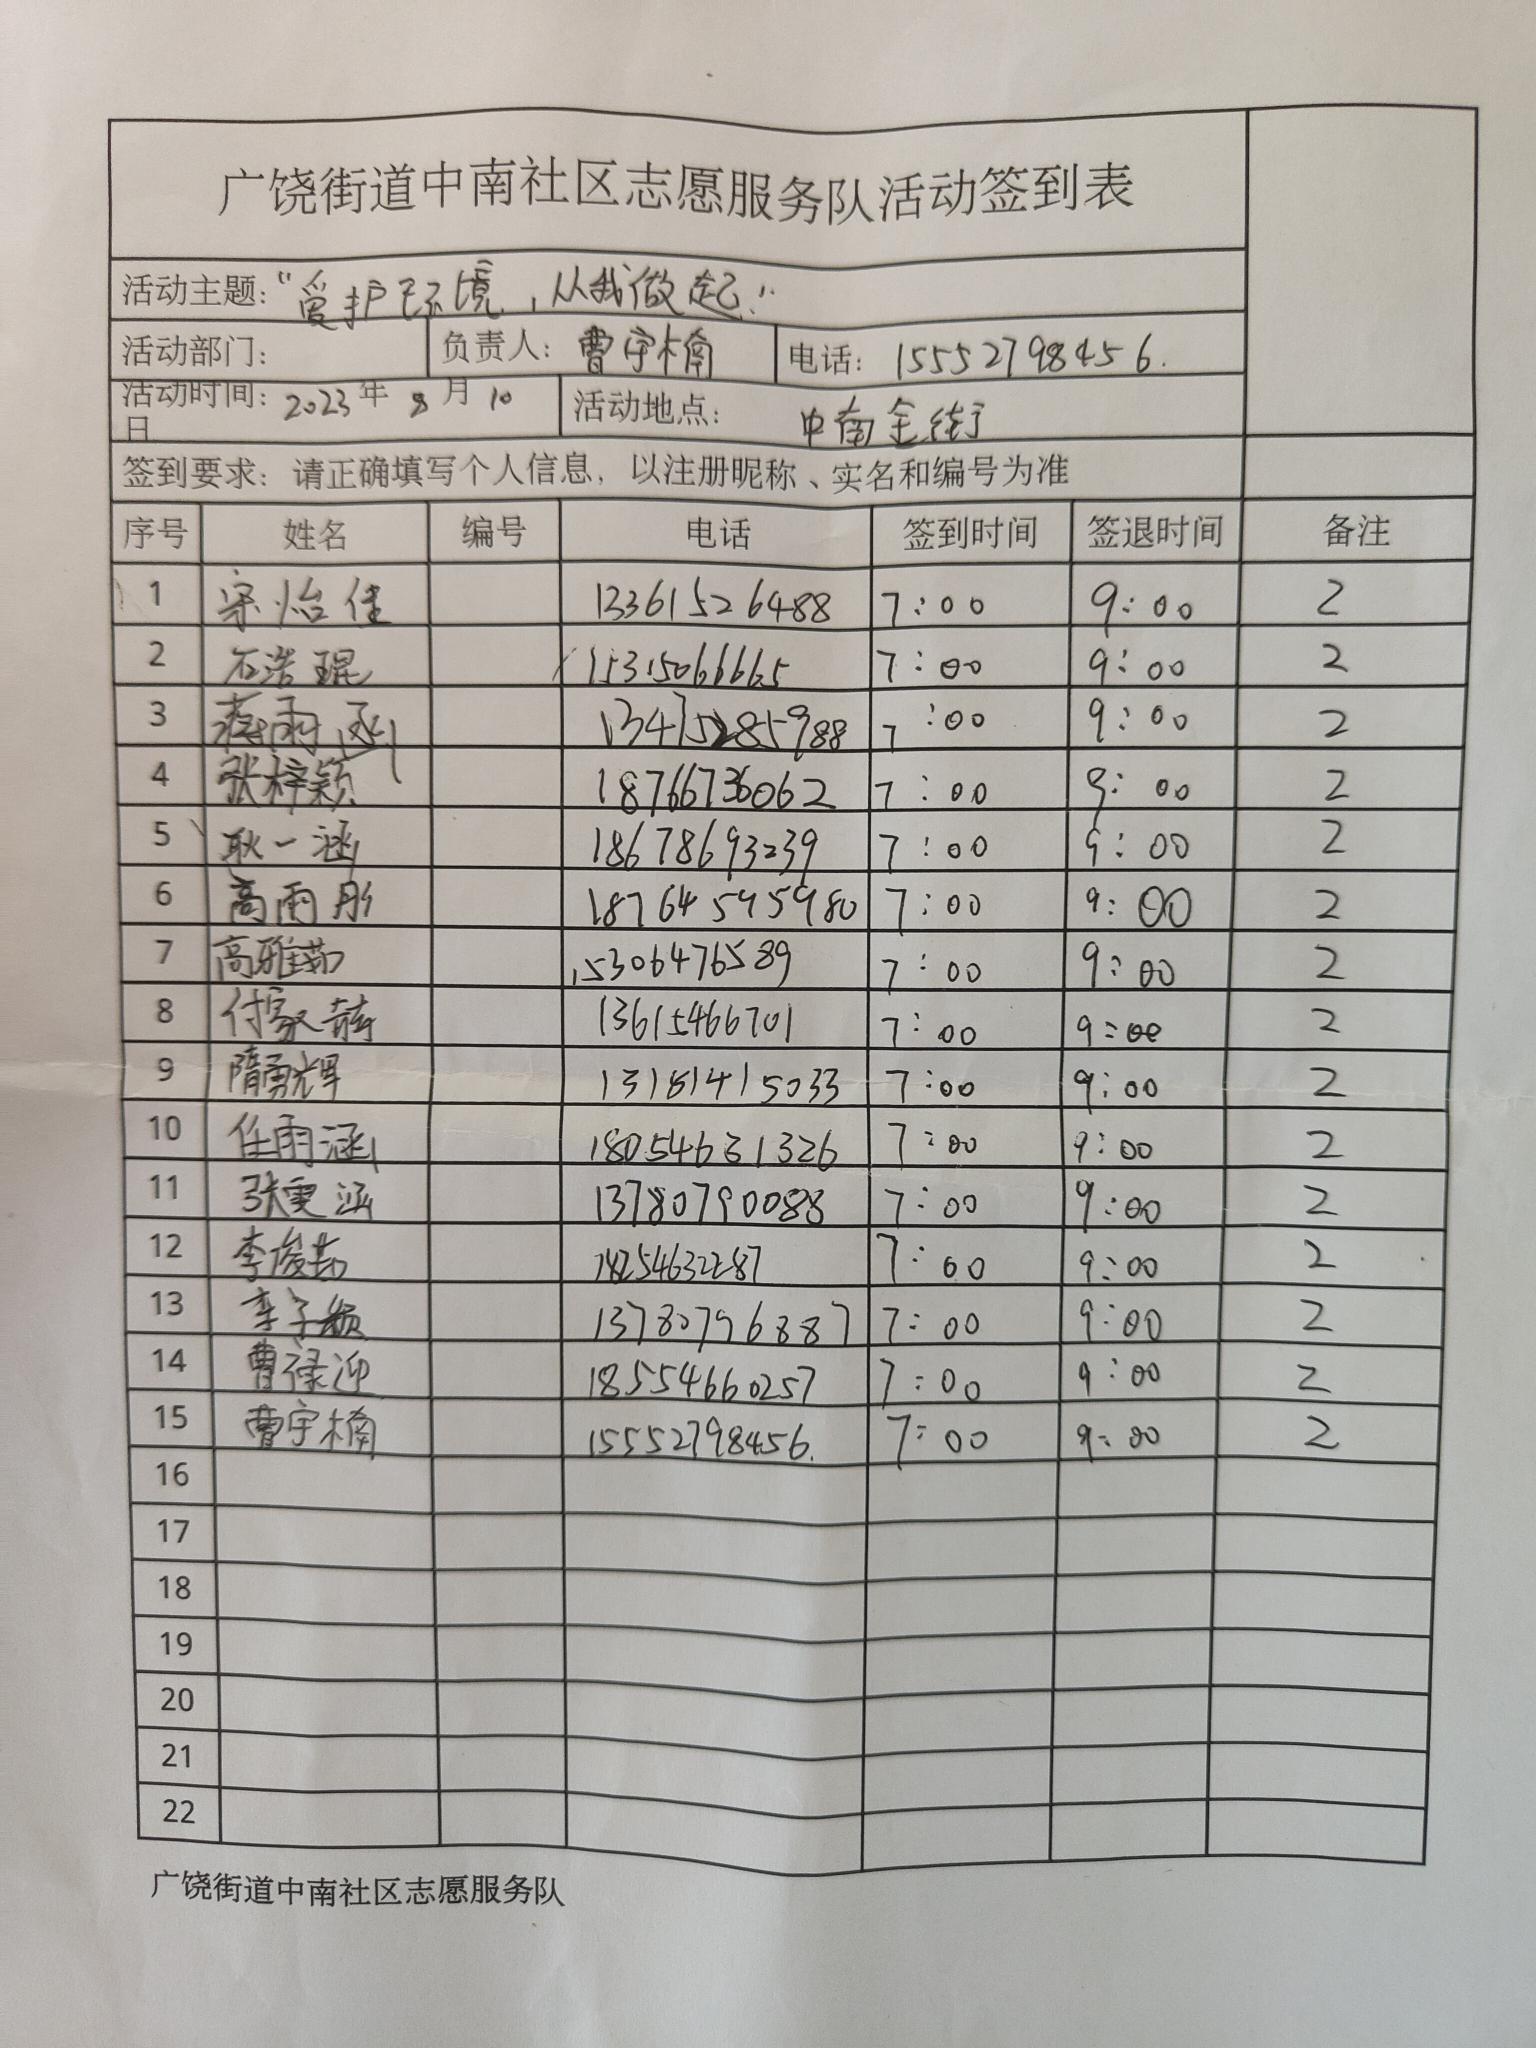 广饶街道中南社区志愿服务队活动签到表
活动主题：“爱护环境，从我做起”
活动部门： 负责人：曹宇楠 电话：15552798456.
活动时间：2023年8月10日 活动地点：中南金街
签到要求：请正确填写个人信息，以注册昵称、实名和编号为准
序号 姓名 编号 电话 签到时间 签退时间 备注
1 宋怡佳 13361526488 7:00 9:00 2
2 石浩琨 15315066665 7:00 9:00 2
3 蒋雨涵 13475285988 7:00 9:00 2
4 张梓颖 18766736062 7:00 9:00 2
5 耿一涵 18678693239 7:00 9:00 2
6 高雨彤 18764595980 7:00 9:00 2
7 高雅茹 15306476589 7:00 9:00 2
8 付家 13615466701 7:00 9:00 2
9 隋勇辉 13181415033 7:00 9:00 2
10 任雨涵 18054631326 7:00 9:00 2
11 张雯涵 13780790088 7:00 9:00 2
12 李俊茹 18254632287 7:00 9:00 2
13 李子颖 13780796887 7:00 9:00 2
14 曹禄迎 18554660257 7:00 9:00 2
15 曹宇楠 15552798456. 7:00 9:00 2
16
17
18
19
20
21
22
广饶街道中南社区志愿服务队